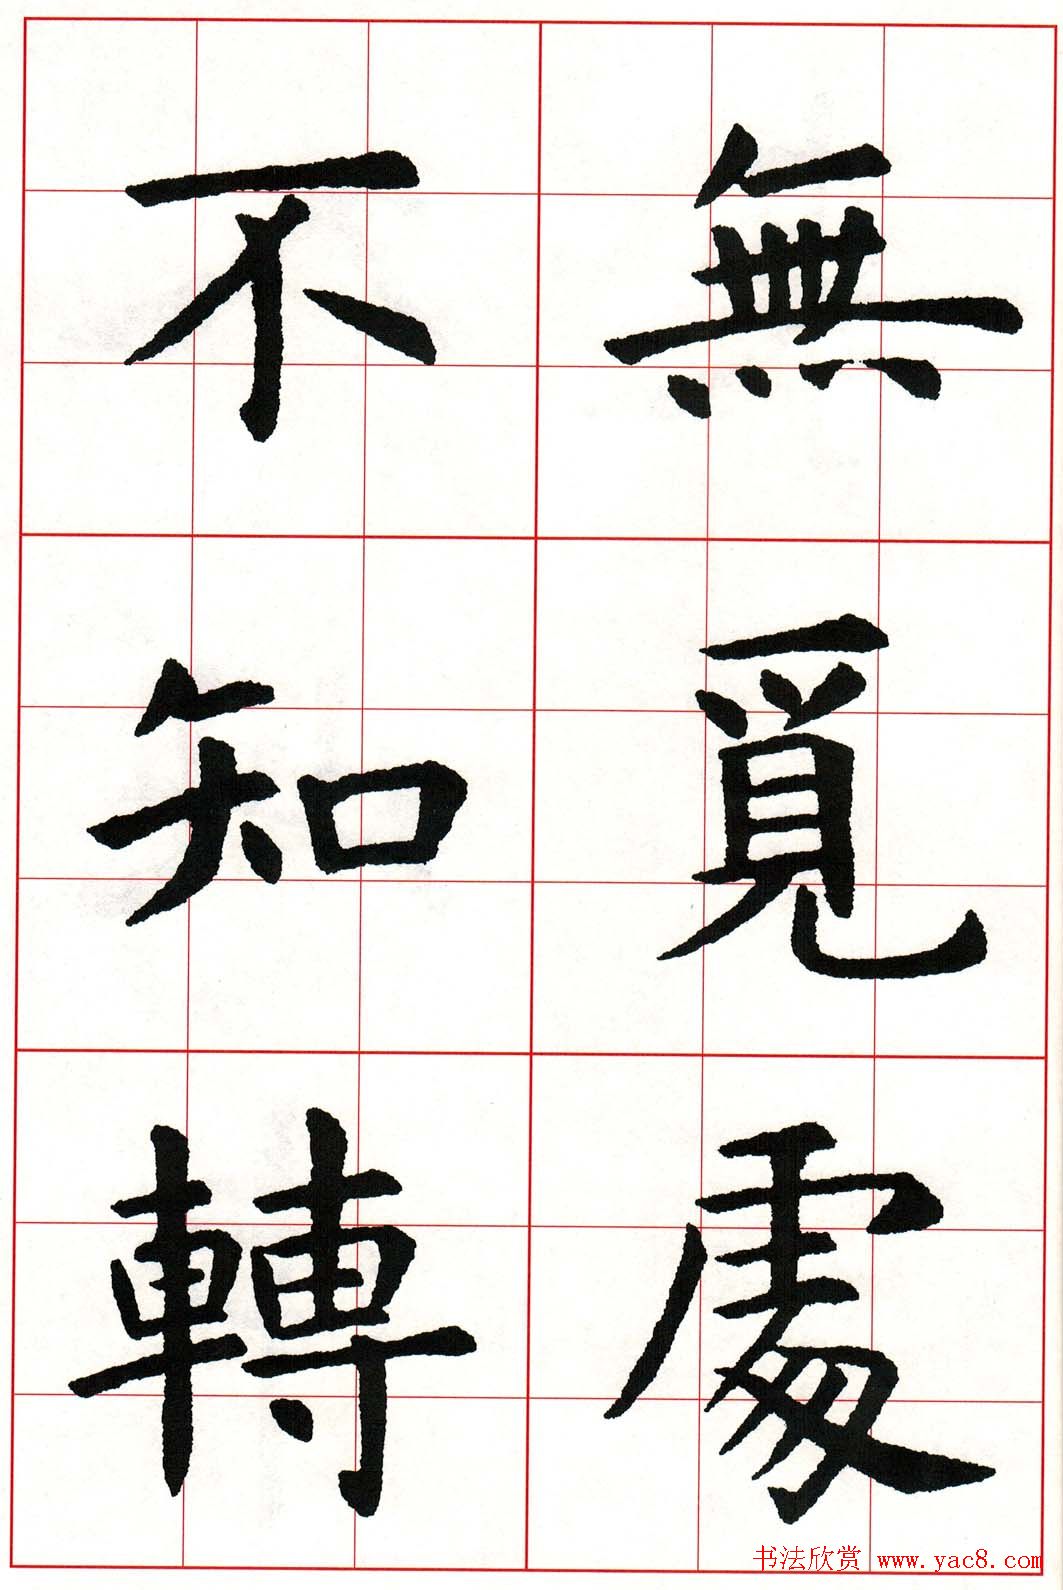 無覓處
不知轉
书法欣赏 www.yac8.com